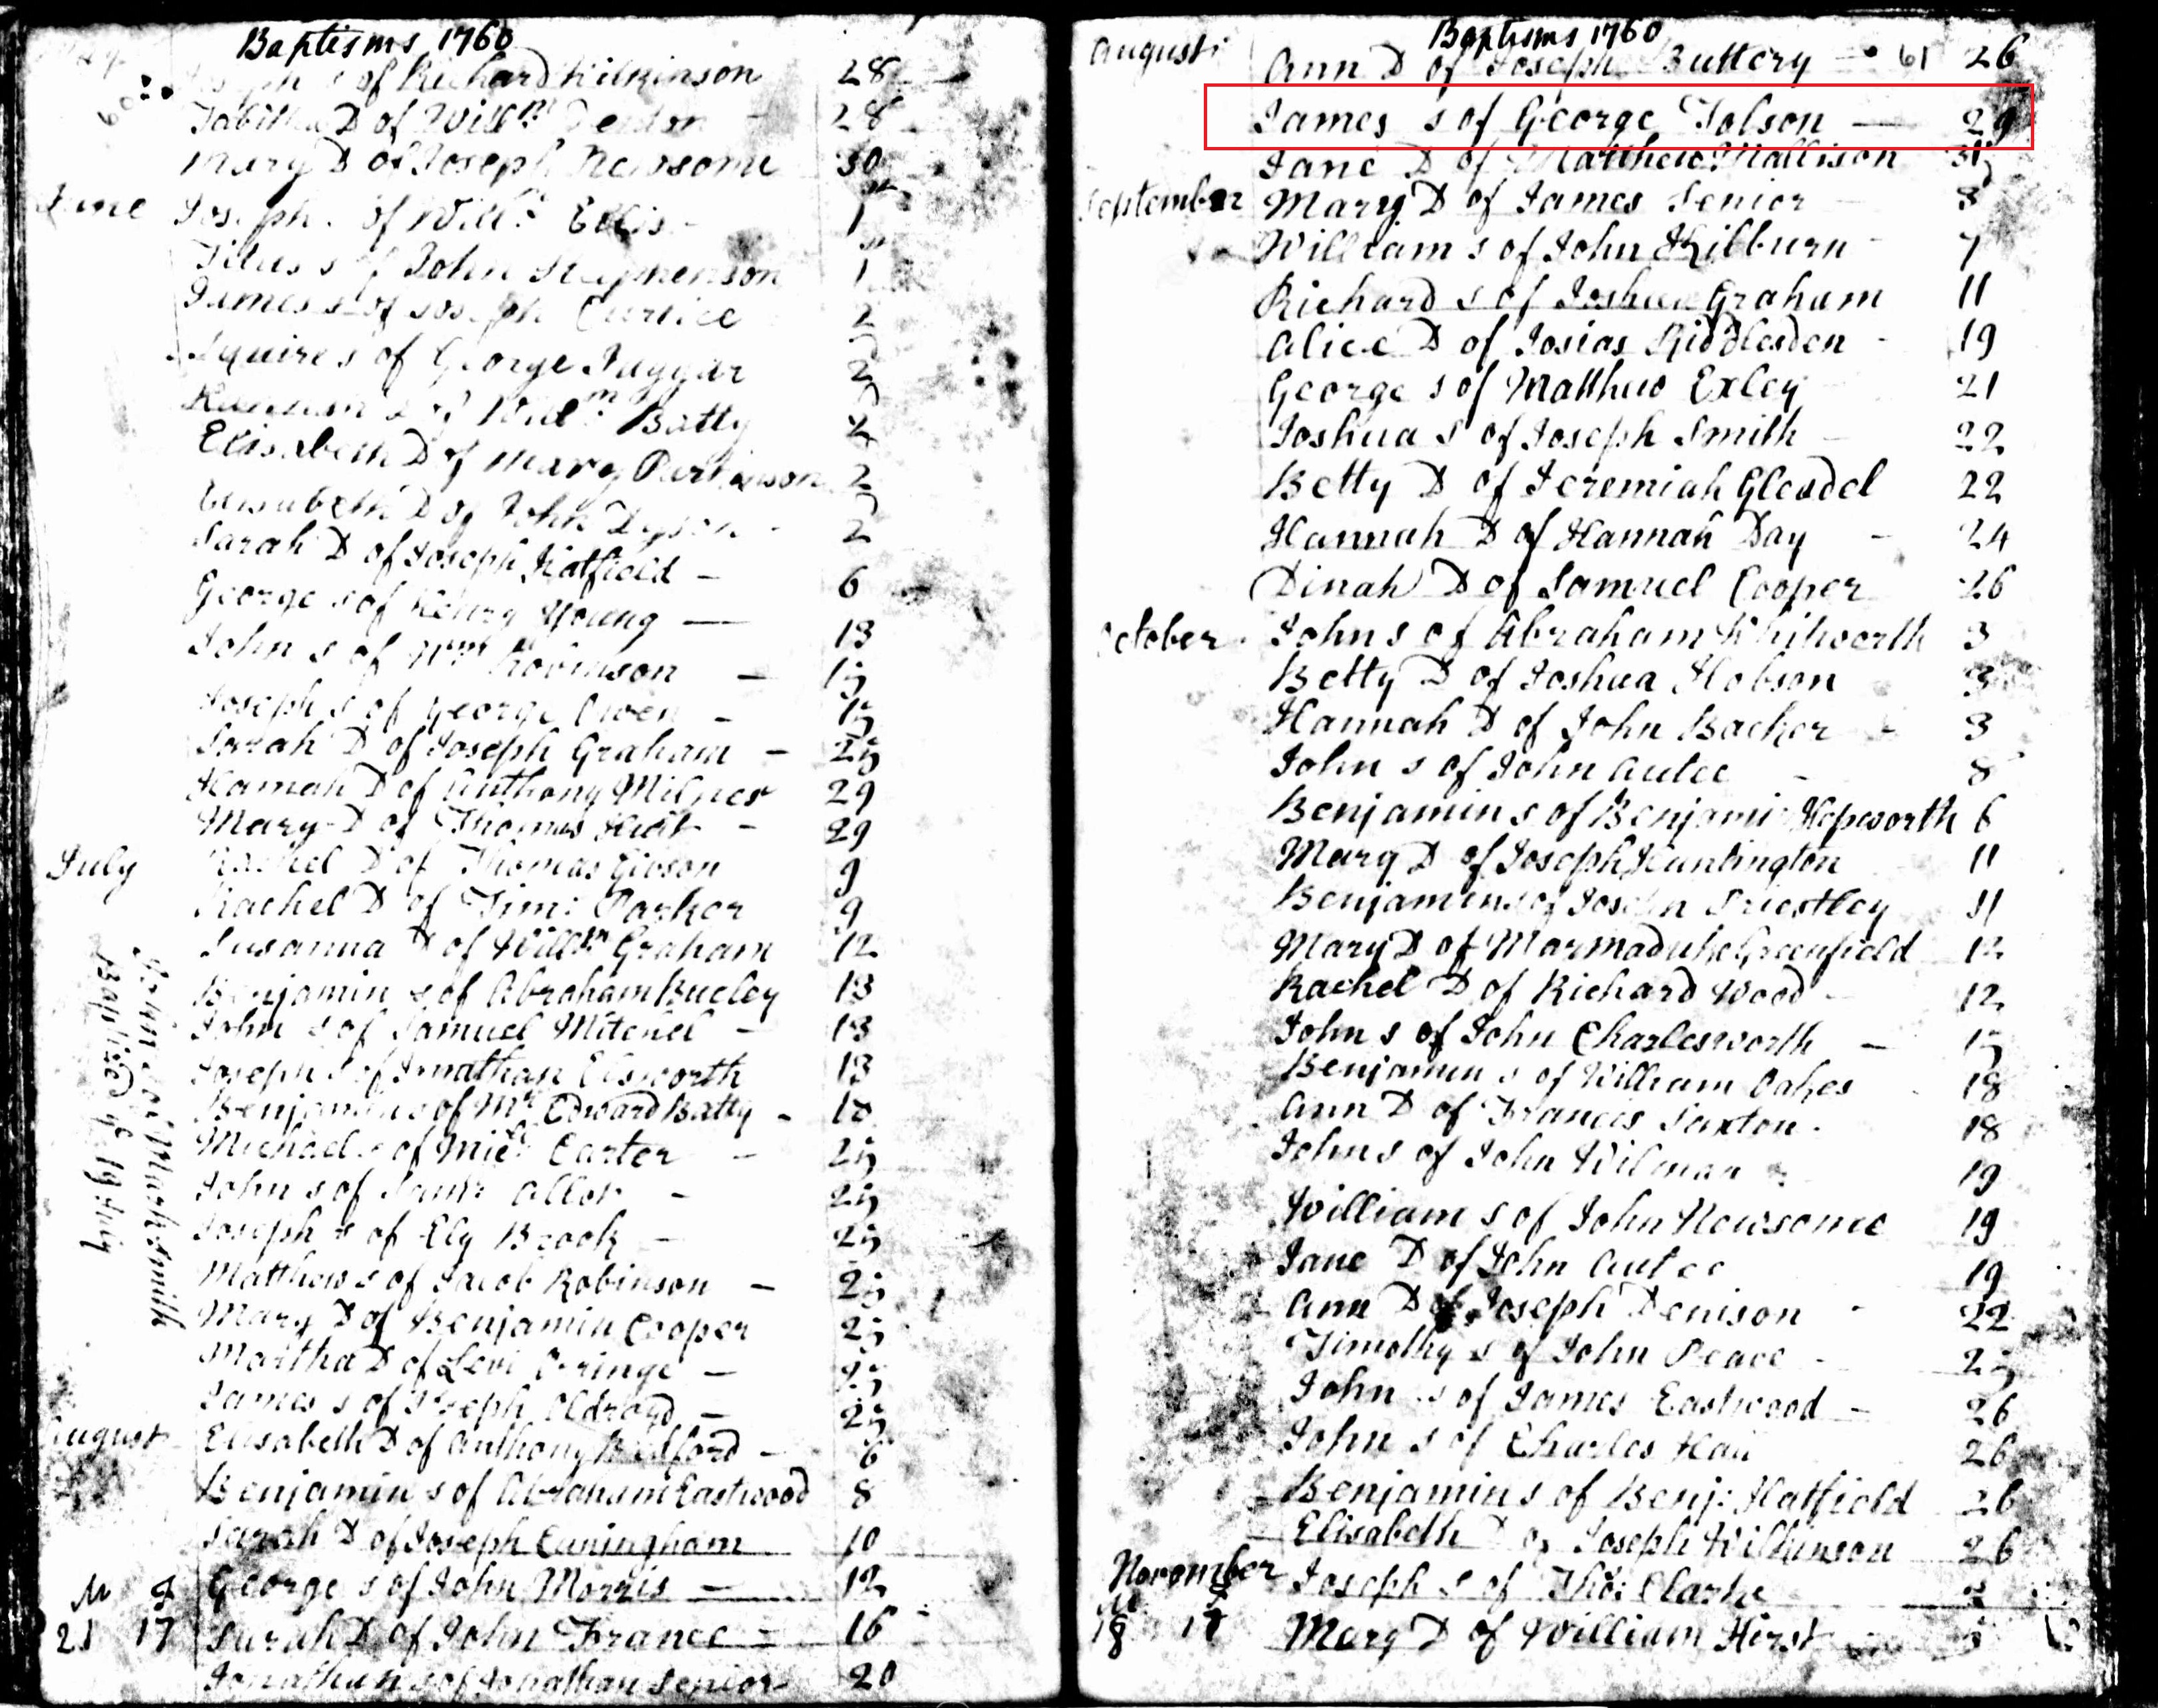 Baptisms 1760
s of Richard Wilkinson 28
Tabitha D of Willm 28
Mary D of Joseph Newsome 30
June Joseph of Willm Ellis 1
Titus s of John Stephenson 1
James s of Joseph 2
Squire s of George Jaggar 2
s of Willm Batty 2
Elisabeth D of Mary Parkinson 2
Elisabeth D of John Dyson 2
Sarah D of Joseph Hatfield - 6
George s of Henry Young — 13
John s of Wm Robinson - 15
Joseph s of George Owen - 15
Sarah D of Joseph Graham - 25
Hannah D of Anthony Milnes 29
Mary D of Thomas - 29
July Rachel D of Thomas Gibson 9
Rachel D of Tim: Parker 9
Susanna D of Willm Graham 12
Benjamin s of Abraham 13
John s of Samuel Mitchel - 13
Joseph s of Jonathan 13
Benjamin s of Mr. Edward Batty -
Michael s of Micl. Carter - 25
John s of Saml: - 25
Joseph s of Ely Brook - 25
Matthew s of Jacob Robinson - 25
Mary D of Benjamin Cooper 25
Martha D of Levi - 25
James s of Joseph Oldroyd - 25
August Elisabeth D of Anthony - 6
Benjamin s of Abraham Eastwood 8
Sarah D of Joseph Cuningham 10
M F George s of John Morris — 12
21 17 Sarah D of John France - 16
Jonathan s of Jonathan Senior 20
s of Mark Smith
Baptized ye 19 July
Baptisms 1760
August Ann D of Joseph Buttery - 61 26
James s of George Tolson — 29
Jane D of Matthew Mallison 31
September Mary D of James Senior 3
William s of John Kilburn - 7
Richard s of Joshua Graham 11
Alice D of Josias Riddlesden - 19
George s of Matthew Exley 21
Joshua s of Joseph Smith - 22
Betty D of Jeremiah Gleadel 22
Hannah D of Hannah Day - 24
Dinah D of Samuel Cooper 26
October John s of Abraham Whitworth 3
Betty D of Joshua Hobson 3
Hannah D of John Backer - 3
John s of John Autee - 8
Benjamin s of Benjami: Hepworth 6
Mary D of Joseph Huntington 11
Benjamin s of Joseph Priestley 11
Mary D of Marmaduke Greenfield 12
Rachel D of Richard Wood - 12
John s of John Charlesworth - 15
Benjamin s of William Oakes - 18
Ann D of Francis Saxton - 18
John s of John Wilman 19
William s of John Newsome 19
Jane D of John Autee 19
Ann D of Joseph Denison - 22
Timothy s of John Peace - 25
John s of James Eastwood - 26
John s of Charles 26
Benjamin s of Benj: Hatfield 26
Elisabeth D of Joseph Wilkinson 26
November Joseph s of Thos: Clarke
M F
18 17 Mary D of William Hirst